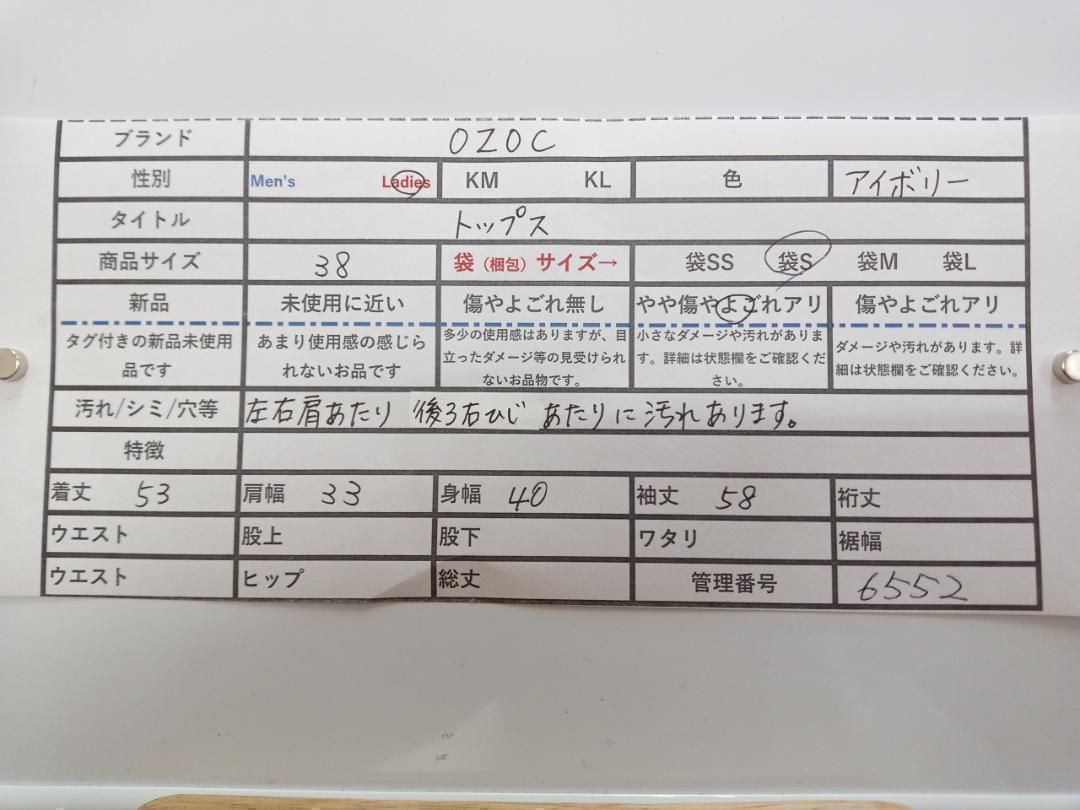 ブランド OZOC
性別 Men's Ladies KM KL 色 アイボリー
タイトル トップス
商品サイズ 38 袋（梱包）サイズ→ 袋SS 袋S 袋M 袋L
新品 未使用に近い 傷やよごれ無し やや傷やよごれアリ 傷やよごれアリ
タグ付きの新品未使用
品です
あまり使用感の感じら
れないお品です
多少の使用感はありますが、目
立ったダメージ等の見受けられ
ないお品物です。
小さなダメージや汚れがありま
す。詳細は状態欄をご確認くだ
さい。
ダメージや汚れがあります。詳
細は状態欄をご確認ください。
汚れ/シミ/穴等 左右肩あたり 後ろ右ひじ あたりに汚れあります。
特徴
着丈 53 肩幅 33 身幅 40 袖丈 58 裄丈
ウエスト 股上 股下 ワタリ 裾幅
ウエスト ヒップ 総丈 管理番号 6552